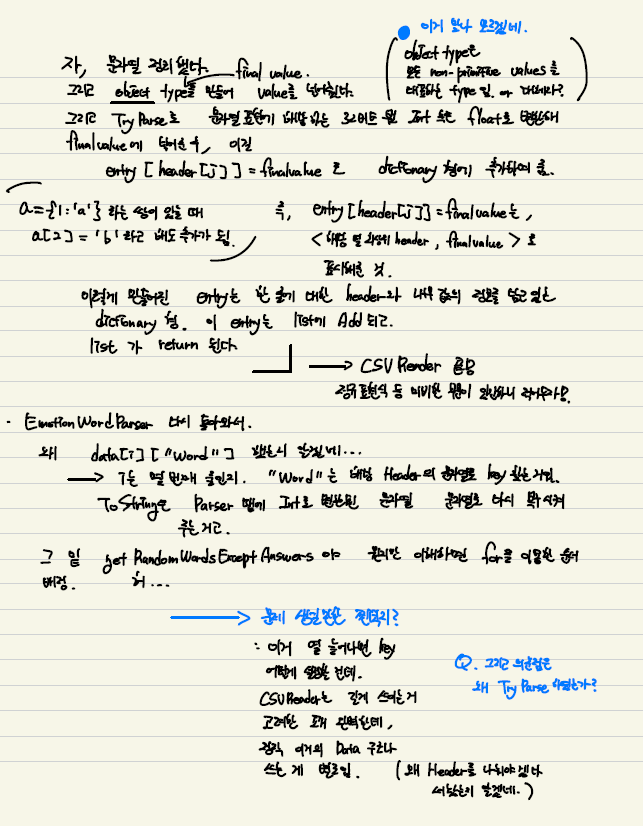 이거 맞나 모르겠네.
object type은
모든 non-primitive values를
대표하는 type 임. or 대체자?
자, 문자열 정리했다.
final value.
그리고 object type를 만들어 value를 넣어줬다.
그리고 Try Parse로 문자열 표현가 해당 없는 32비트 된 Int 또는 float로 변환해
finalvalue에 넣어준 후, 이걸
entry [header[j]] = finalvalue 로 dictionary 형에 추가하여 줌.
a={1:'a'} 라는 쌍이 있을 때
a[2] = 'b' 라고 해도 추가가 됨.
즉, entry[header[j]] = finalvalue는,
<해당 열 최상위 header, finalvalue> 로
표시해준 것.
이렇게 만들어진 entry는 한 줄에 대한 header와 내부 값의 정보를 담고 있는
dictionary 형. 이 entry는 list에 Add 되고.
list 가 return 된다.
CSV Reader 끝
정규표현식 등 미비한 부분이
· Emotion Word Parser 다시 돌아와서.
왜 data[i]["Word"] 했는지 알겠네...
i는 몇 번째 줄인지. "Word"는 해당 Header의 문자열로 key 찾는거임.
ToString은 Parser 땜에 Int로 변환된 문자열 문자열로 다시 복귀시켜
주는거고.
그 밑 get RandomWordsExcept Answers 야 원리만 이해하면 for을 이용한 랜덤
배정. 허...
문제
: 이거 열 늘어나면 key
어떻게 할건데.
CSVReader는 길게 쓰이는거
고려한 완벽한데,
정작 이거의 Data 구조나
쓰는 게 별로임. (왜 Header를 나눠야
알겠네.)
Q. 그리고 의문점은
왜 Try Parse 하였는가?